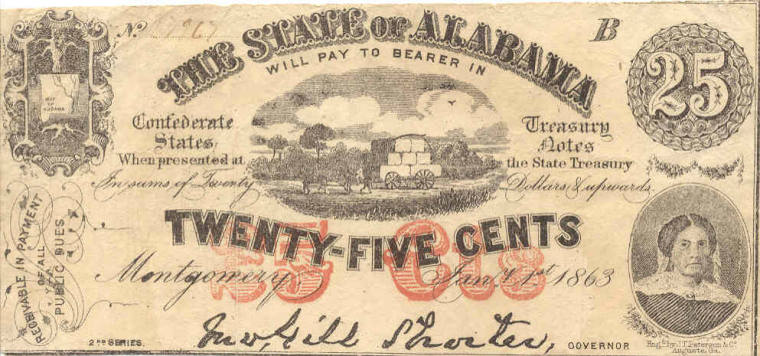 No. 17967
THE STATE OF ALABAMA
B
WILL PAY TO BEARER IN
25
MAP OF ALABAMA
Confederate States,
Treasury Notes
When presented at the State Treasury
In sums of Twenty Dollars & upwards.
TWENTY-FIVE CENTS
25 Cts
Montgomery, Jany. 1st 1863
RECEIVABLE IN PAYMENT
OF ALL
PUBLIC DUES
2ND SERIES.
Jno. Gill Shorter,
GOVERNOR
Engd. by J.T. Paterson & Co.
Augusta, Ga.